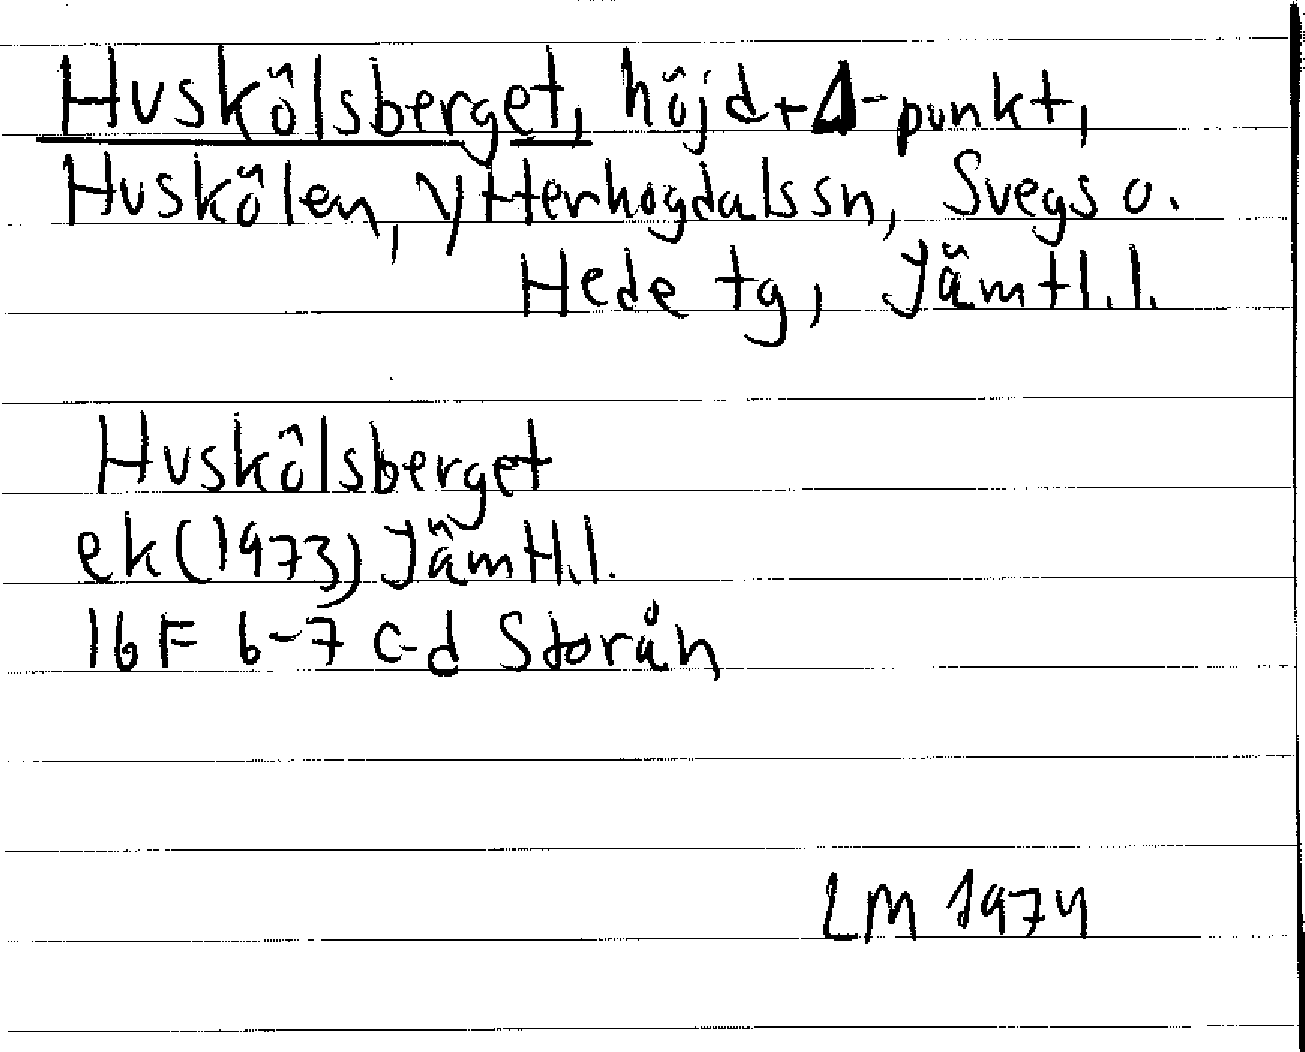 Huskölsberget, höjd+Δ-punkt,
Huskölen, Ytterhogdals sn, Svegs o.
Hede tg, Jämtl.l.
Huskölsberget
ek(1973) Jämtl.l.
16F 6-7 c-d Storån
LM 1974